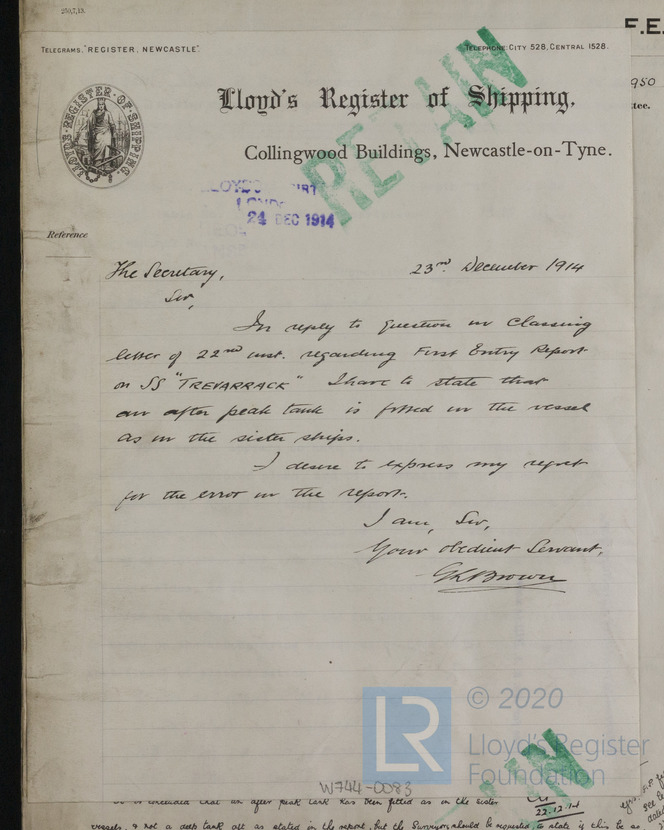 250,7,13.
F.E.
TELEGRAMS, "REGISTER, NEWCASTLE".
TELEPHONE: CITY 528, CENTRAL 1528.
950
tee.
LLOYD'S REGISTER OF SHIPPING.
Lloyd's Register of Shipping,
Collingwood Buildings, Newcastle-on-Tyne.
RETAIN
24 DEC 1914
Reference
The Secretary, 23rd. December 1914
Sir,
In reply to question in Classing
letter of 22nd inst. regarding First Entry Report
on SS "TREVARRACK" I have to state that
an after peak tank is fitted in the vessel
as in the sister ships.
I desire to express my regret
for the error in the report.
I am, Sir,
Your obedient Servant,
GL Brown
LR
© 2020
Lloyd's Register
Foundation
W744-0083
concluded that an after peak tank has been fitted as in the sister
22.12.14
vessels, & not a deep tank aft as stated in the report, but the Surveyor should be requested to state if this is so